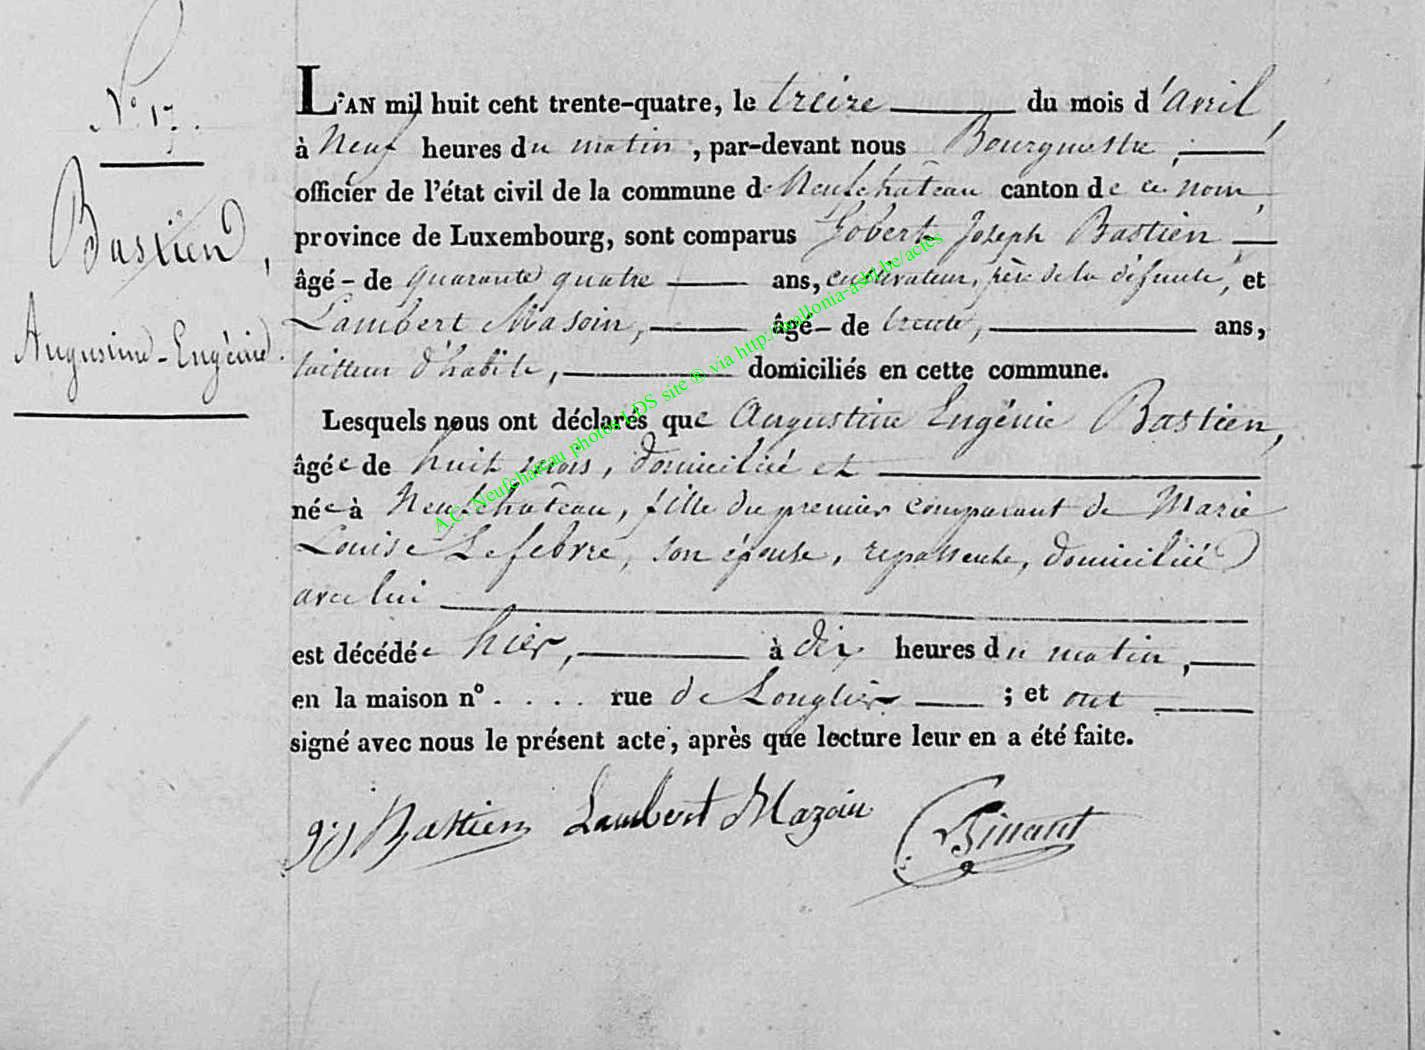 N° 17.
Bastien,
Augustine-Eugénie.
L'AN mil huit cent trente-quatre, le treize du mois d'avril,
à Neuf heures du matin, par-devant nous Bourgmestre,
officier de l'état civil de la commune de Neufchâteau canton de ce nom,
province de Luxembourg, sont comparus Gobert Joseph Bastien
âgé - de quarante quatre ans, cultivateur, père de la défunte, et
Lambert Masoin, âgé - de trente, ans,
tailleur d'habits, domiciliés en cette commune.
Lesquels nous ont déclarés que Augustine Eugénie Bastien,
âgée de huit mois, domiciliée et
née à Neufchâteau, fille du premier comparant de Marie
Louise Lefebvre, son épouse, repasseuse, domiciliée
avec lui
est décédée hier, à dix heures du matin,
en la maison n° . . . . rue de Longlier ; et ont
signé avec nous le présent acte, après que lecture leur en a été faite.
Bastien Lambert Mazoin Binant
A.C. Neufchâteau photos LDS site ® via http://wallonia-asbl.be/actes